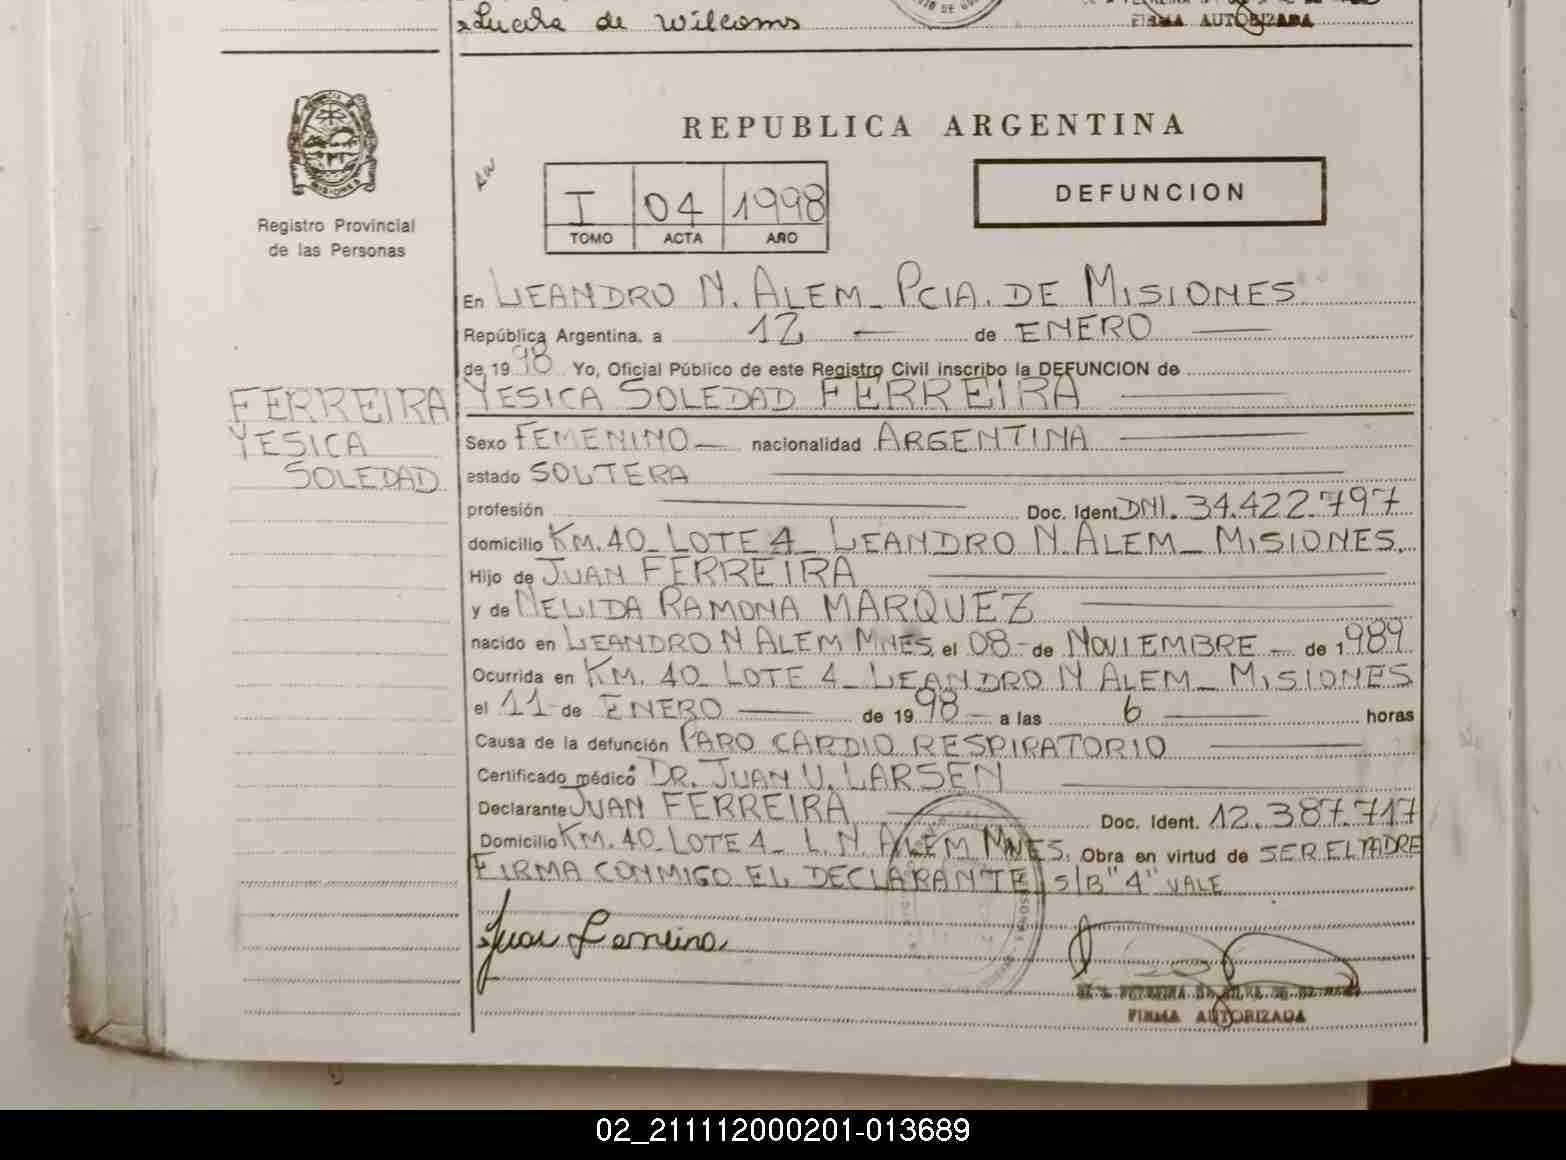 Lucila de Wilcoms
FIRMA AUTORIZADA
REPUBLICA ARGENTINA
MISIONES
Registro Provincial
de las Personas
I 04 1998
TOMO ACTA AÑO
DEFUNCION
En LEANDRO N. ALEM_ PCIA. DE MISIONES
República Argentina, a 12 — de ENERO —
de 19 98 Yo, Oficial Público de este Registro Civil inscribo la DEFUNCION de
FERREIRA
YESICA
SOLEDAD
YESICA SOLEDAD FERREIRA —
Sexo FEMENINO — nacionalidad ARGENTINA —
estado SOLTERA —
profesión — Doc. Ident DNI. 34.422.797
domicilio KM. 40_ LOTE 4_ LEANDRO N. ALEM_ MISIONES.
Hijo de JUAN FERREIRA —
y de NELIDA RAMONA MARQUEZ —
nacido en LEANDRO N ALEM MNES. el 08 - de NOVIEMBRE — de 1 989
Ocurrida en KM. 40_ LOTE 4_ LEANDRO N ALEM_ MISIONES
el 11 - de ENERO — de 19 98 — a las 6 — horas
Causa de la defunción PARO CARDIO RESPIRATORIO —
Certificado médico DR. JUAN U. LARSEN —
Declarante JUAN FERREIRA — Doc. Ident. 12.387.717
Domicilio KM. 40_ LOTE 4_ L. N. ALEM MNES. Obra en virtud de SER EL PADRE
FIRMA CONMIGO EL DECLARANTE S/B "4" VALE
Juan Ferreira
FIRMA AUTORIZADA
02_211112000201-013689